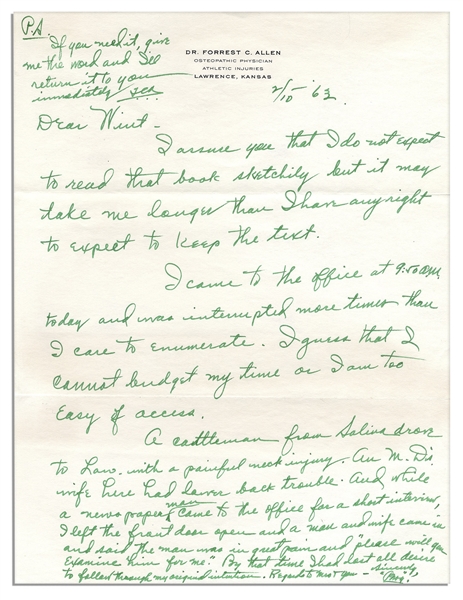 P.S.
If you need it, give
me the word and I'll
return it to you
immediately
DR. FORREST C. ALLEN
OSTEOPATHIC PHYSICIAN
ATHLETIC INJURIES
LAWRENCE, KANSAS
2/10 - '63.
Dear Wint -
I assure you that I do not expect
to read that book sketchily but it may
take me longer than I have any right
to expect to keep the text.
I came to the office at 9:50 a.m.
today and was interrupted more times than
I care to enumerate. I guess that I
cannot budget my time or I am too
easy of access.
A cattleman from Salina drove
to Law. with a painful neck injury. An M.D.s
wife here had lower back trouble. And while
a news paper man came to the office for a short interview,
I left the front door open and a man and wife came in
and said the man was in great pain and "please will you
examine him for me." By that time I had lost all desire
to follow through my original intention. Regards to most you - sincerely,
"Phog".